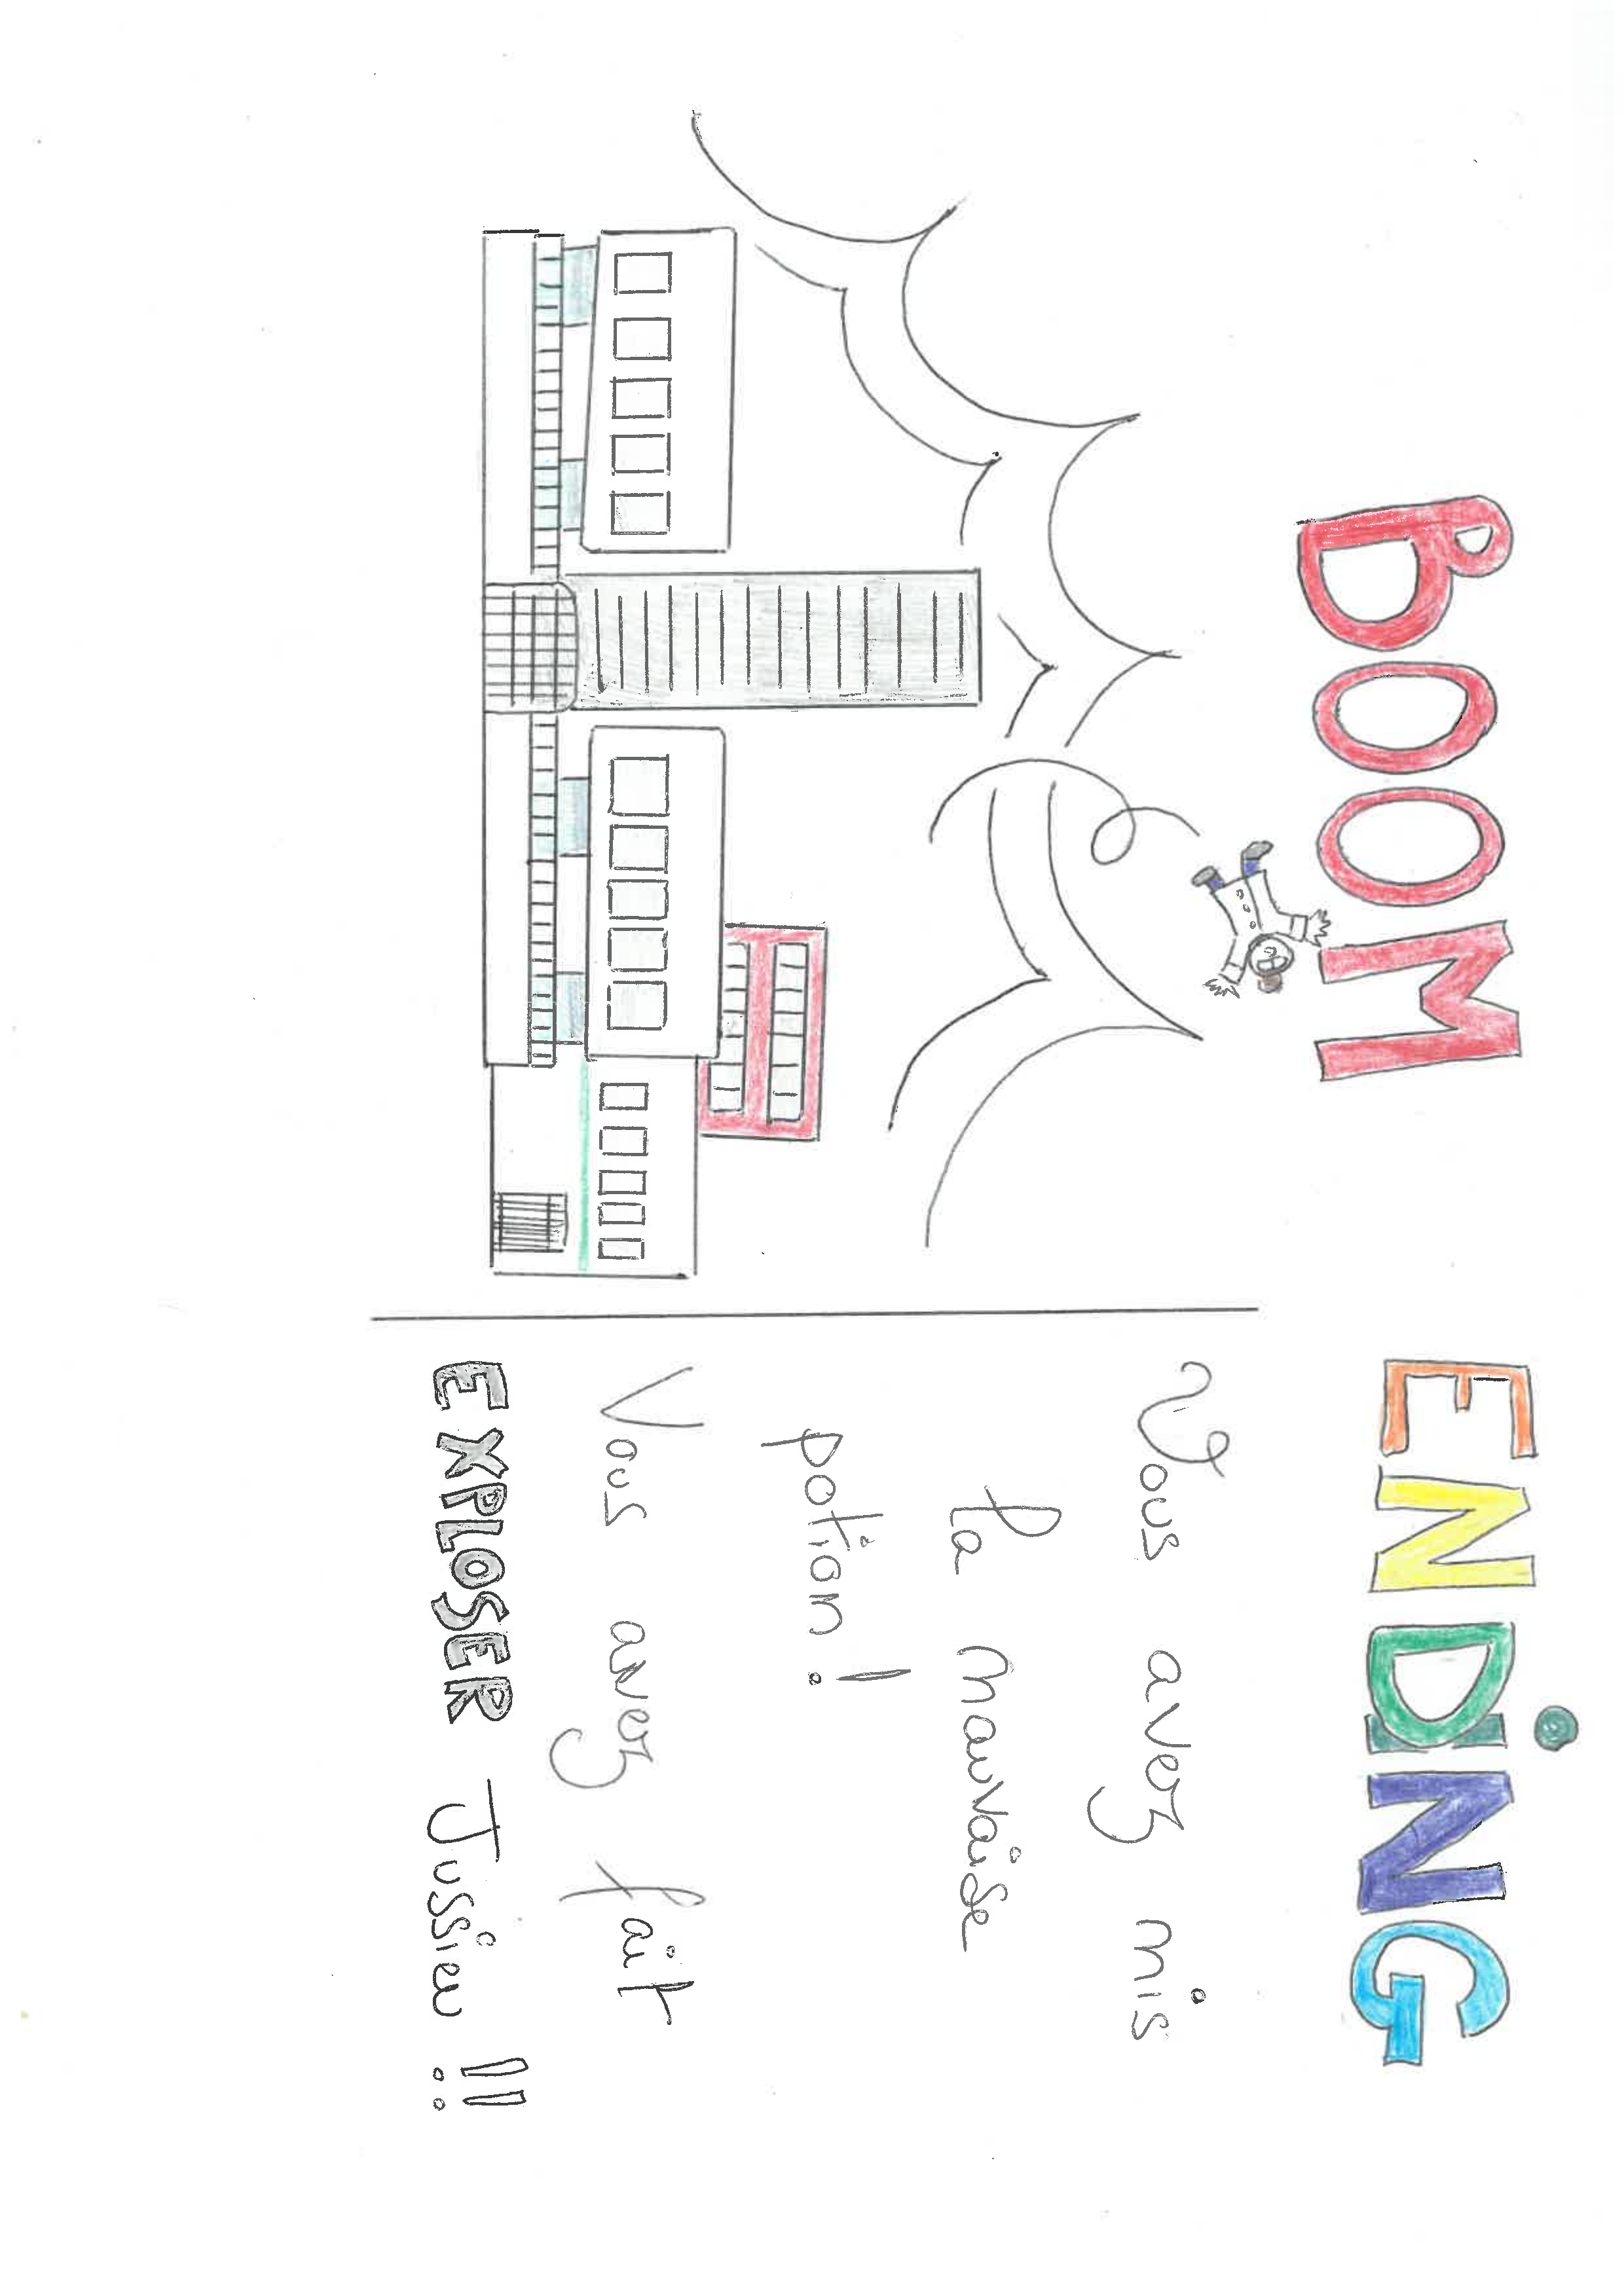 BOOM
ENDiNG
Vous avez mis
la mauvaise
potion !
Vous avez fait
EXPLOSER Jussieu !!